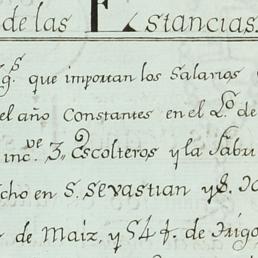 de las Estancias
g.s que importan los Salarios
el año Constantes en el L.o de
inc.ve 3,, Escolteros y la Sabu
cho en S. Sevastian y S. Jo
de Maiz, y 54 f. de Trigo